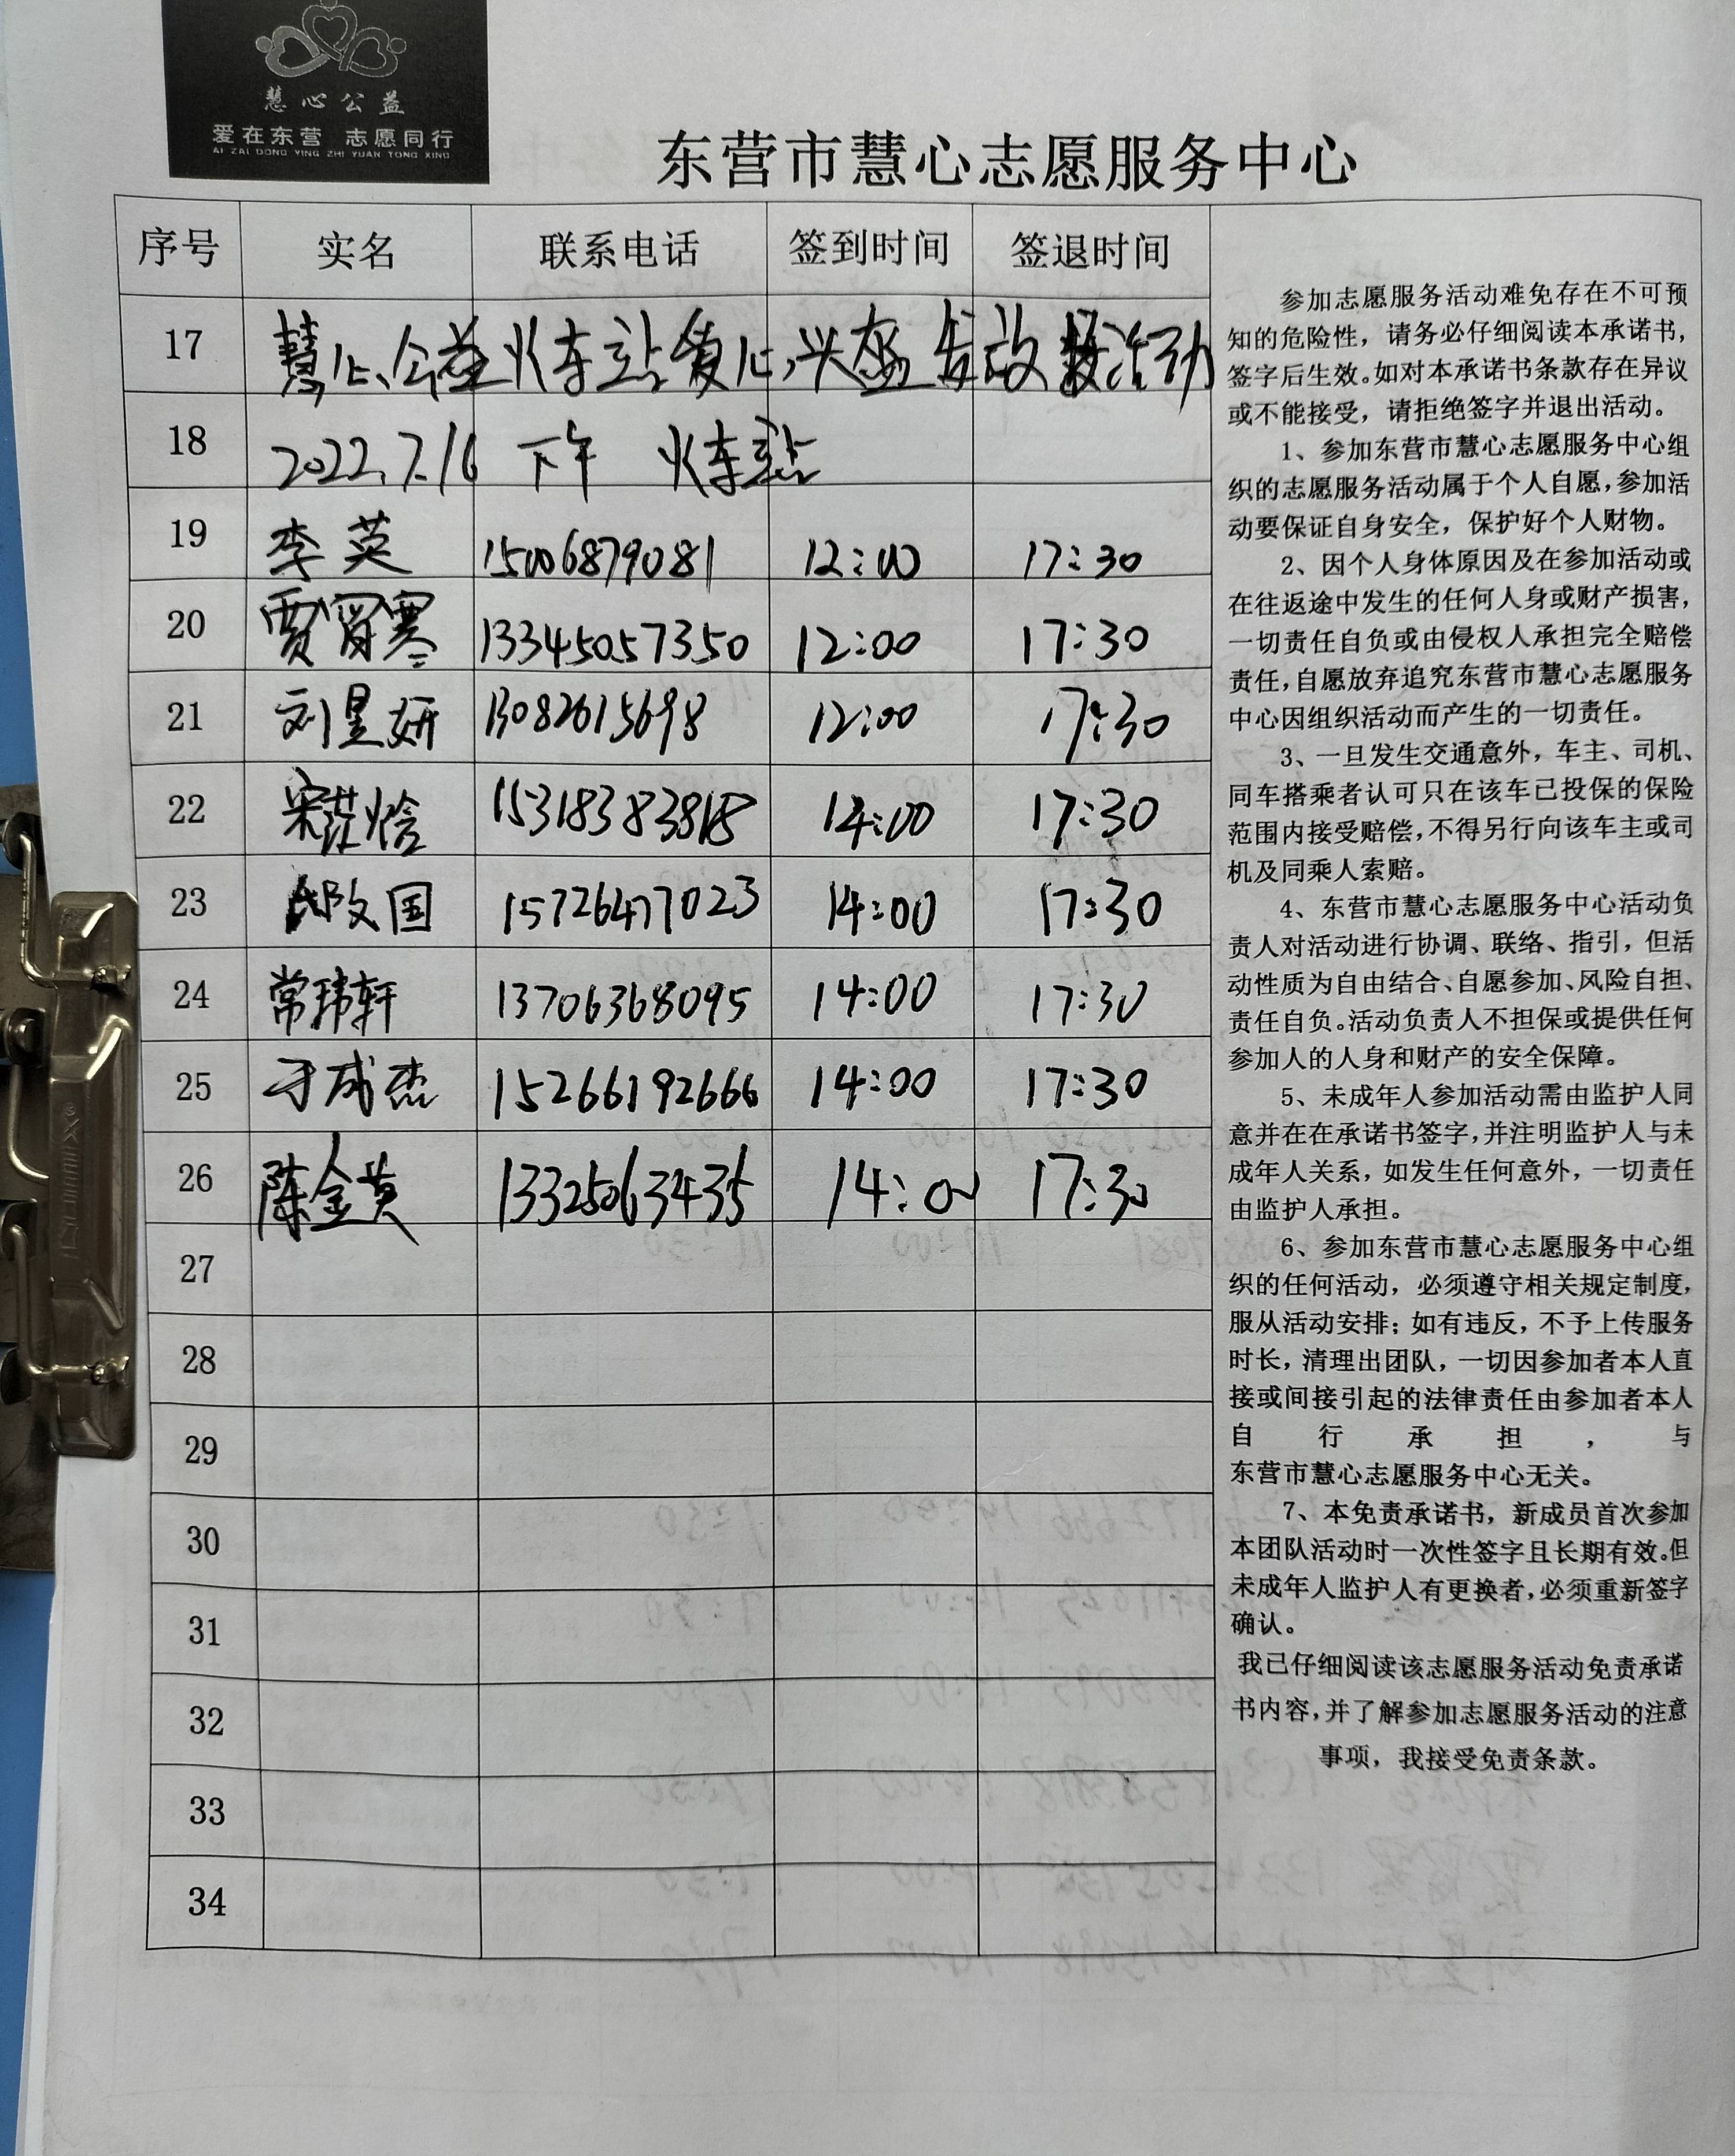 慧心公益
爱在东营 志愿同行
AI ZAI DONG YING ZHI YUAN TONG XING
东营市慧心志愿服务中心
序号 实名 联系电话 签到时间 签退时间
17 慧心公益火车站爱心 发放 活动
18 2022.7.16 下午 火车站
19 李英 15006879081 12:00 17:30
20 贾 寒 13345057350 12:00 17:30
21 刘昱妍 13082615698 12:00 17:30
22 宋 15318383818 14:00 17:30
23 邸文国 15726477023 14:00 17:30
24 常玮轩 13706368095 14:00 17:30
25 于成杰 15266192666 14:00 17:30
26 陈金英 13325063435 14:00 17:30
27
28
29
30
31
32
33
34
参加志愿服务活动难免存在不可预
知的危险性，请务必仔细阅读本承诺书，
签字后生效。如对本承诺书条款存在异议
或不能接受，请拒绝签字并退出活动。
1、参加东营市慧心志愿服务中心组
织的志愿服务活动属于个人自愿，参加活
动要保证自身安全，保护好个人财物。
2、因个人身体原因及在参加活动或
在往返途中发生的任何人身或财产损害，
一切责任自负或由侵权人承担完全赔偿
责任，自愿放弃追究东营市慧心志愿服务
中心因组织活动而产生的一切责任。
3、一旦发生交通意外，车主、司机、
同车搭乘者认可只在该车已投保的保险
范围内接受赔偿，不得另行向该车主或司
机及同乘人索赔。
4、东营市慧心志愿服务中心活动负
责人对活动进行协调、联络、指引，但活
动性质为自由结合、自愿参加、风险自担、
责任自负。活动负责人不担保或提供任何
参加人的人身和财产的安全保障。
5、未成年人参加活动需由监护人同
意并在在承诺书签字，并注明监护人与未
成年人关系，如发生任何意外，一切责任
由监护人承担。
6、参加东营市慧心志愿服务中心组
织的任何活动，必须遵守相关规定制度，
服从活动安排；如有违反，不予上传服务
时长，清理出团队，一切因参加者本人直
接或间接引起的法律责任由参加者本人
自行承担，与
东营市慧心志愿服务中心无关。
7、本免责承诺书，新成员首次参加
本团队活动时一次性签字且长期有效。但
未成年人监护人有更换者，必须重新签字
确认。
我已仔细阅读该志愿服务活动免责承诺
书内容，并了解参加志愿服务活动的注意
事项，我接受免责条款。